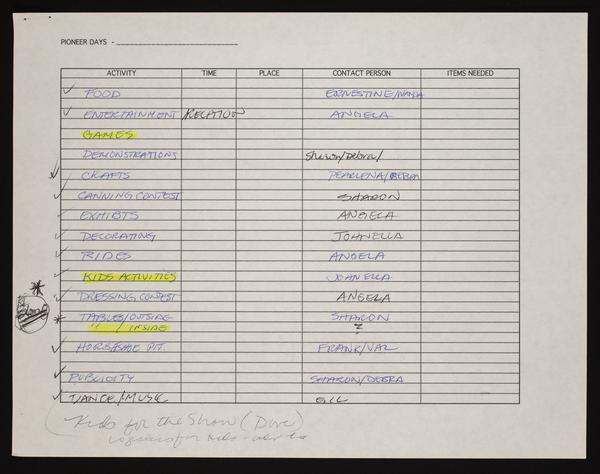 PIONEER DAYS -
ACTIVITY TIME PLACE CONTACT PERSON ITEMS NEEDED
FOOD ERNESTINE/
ENTERTAINMENT/RECEPTION ANGELA
GAMES
DEMONSTRATIONS Sharon/Debra/
CRAFTS PEARLENA/DEBRA
CANNING CONTEST SHARON
EXHIBTS ANGELA
DECORATING JOHNELLA
RIDES ANGELA
KIDS ACTIVITIES JOHNELLA
DRESSING CONTEST ANGELA
TABLES/OUTSIDE SHARON
" / INSIDE ?
HORSESHOE PIT. FRANK/VAL
PUBLICITY SHARON/DEBRA
DANCE/MUSIC GIL
Kids for the Show (Dave)
for kids